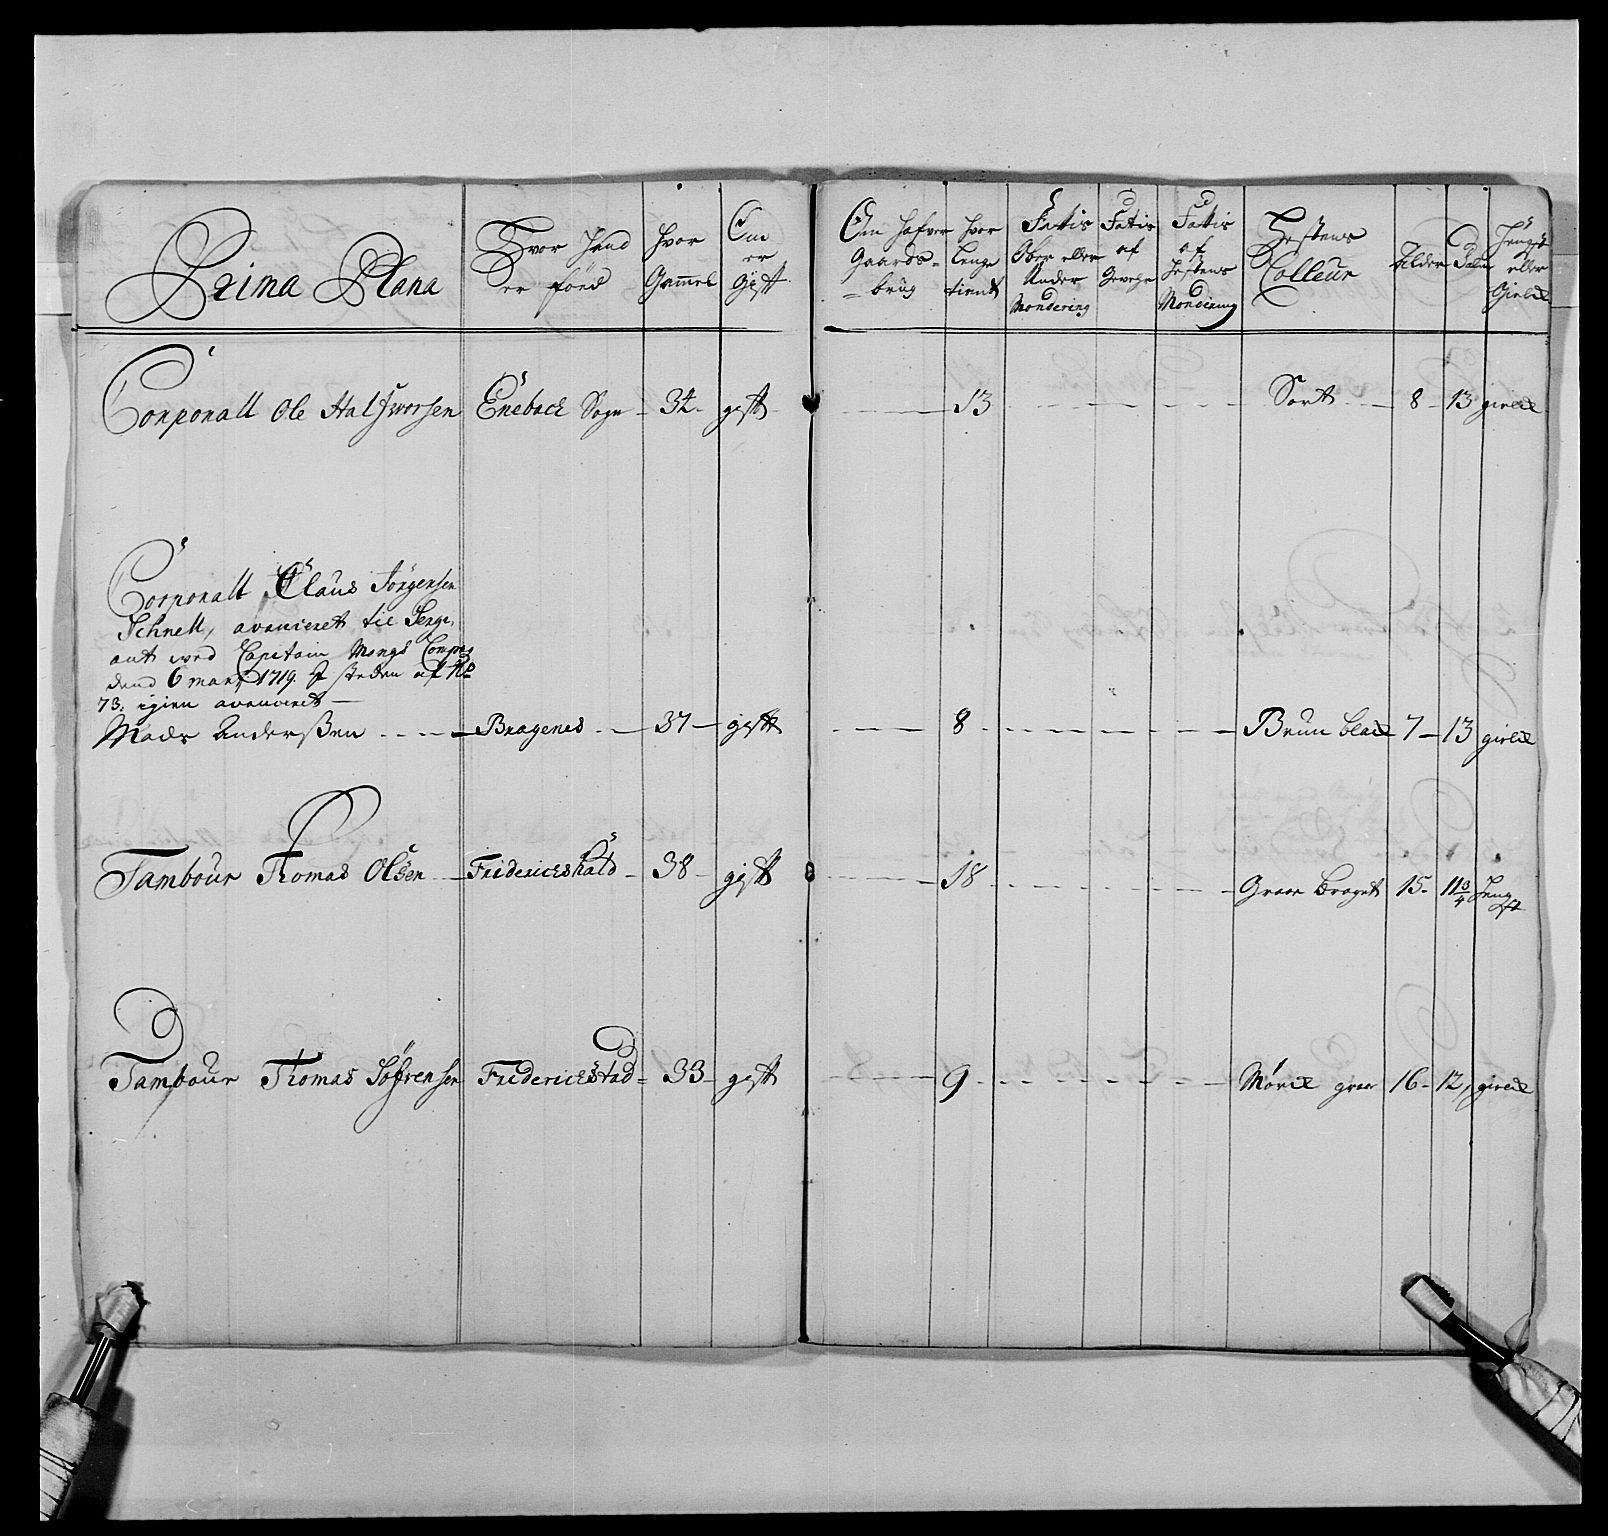 Prima Plana
Hvor Hand er föed
Hvor Gammel
Om er Gift
Om hafver Gaards-brug
Hvor Lenge tient
Fattis Ober eller Under Mondering
Fatis af Gevehr
Fattis af Hestens Mondering
Hestens Colleur
Alder
Palm
Hengst eller Gield
Corporall Ole Halfworsen Enebach Sogn 34 gift 13 Sort 8 13 gield
Corporall Claus Jörgensen
Schnell, avanceret til Serge,
ant ved Capitain Mongs Compag
dend 6 marti 1719. I steden af No
73. igien avanceret
Mads Anderßen Bragenes 37 gift 8 Brun blad 7 13 gield
Tambour Thomas Olsen Friderichshald 38 gift 18 Graa Braget 15 11 3/4 Hengst
Tambour Thomas Söfrensen Friderichstad 33 gift 9 Mörck graa 16 12 gield